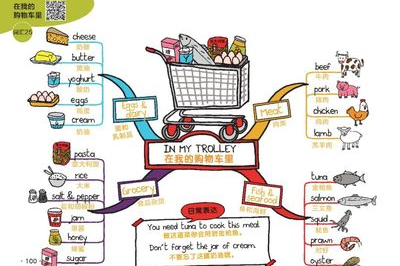 在我的
购物车里
词汇25
cheese
奶酪
butter
黄油
yoghurt
酸奶
eggs
鸡蛋
cream
奶油
Eggs & dairy
蛋和
乳制品
Meat
肉类
beef
牛肉
pork
猪肉
chicken
鸡肉
lamb
羔羊肉
IN MY TROLLEY
在我的购物车里
pasta
意大利面
rice
大米
salt & pepper
jam
果酱
honey
蜂蜜
sugar
100
Grocery
食品杂货
Fish & seafood
鱼和海鲜
tuna
金枪鱼
salmon
三文鱼
squid
鱿鱼
prawn
对虾
oyster
日常表达
You need tuna to cook this meal.
做这道菜你需用到金枪鱼。
Don't forget the jar of cream.
不要忘了这罐奶油哦。